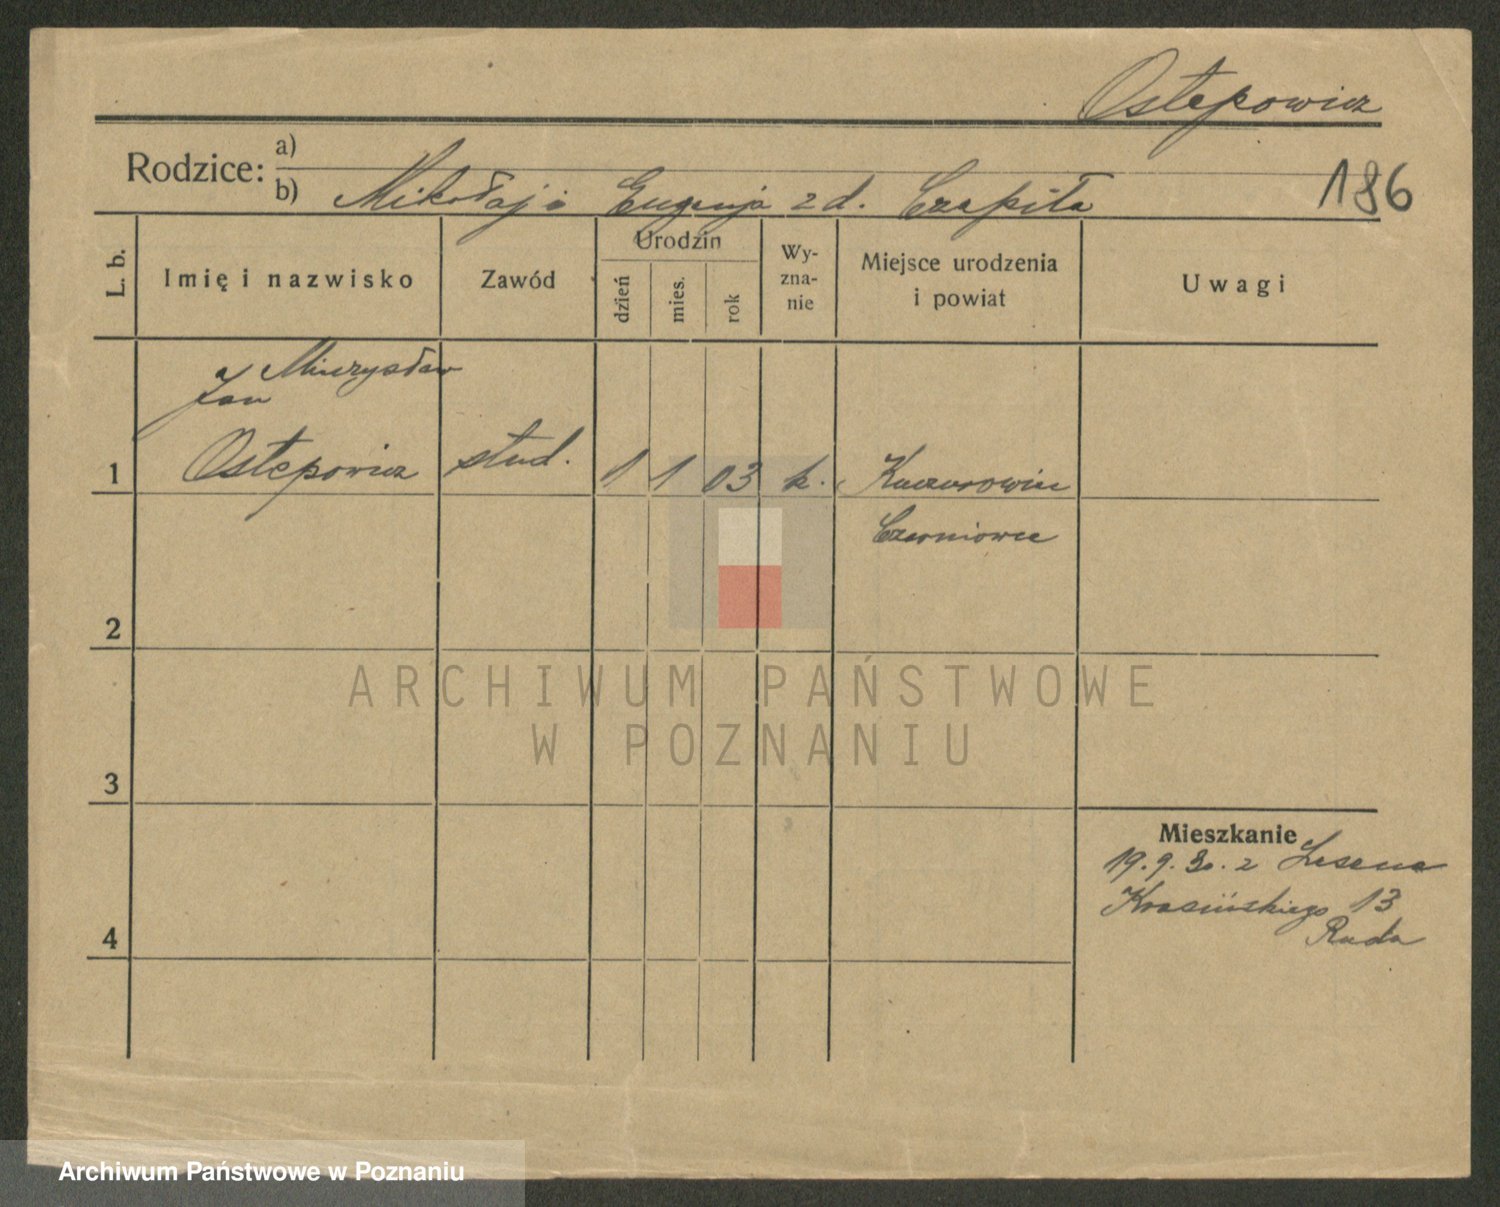 Ostepowicz
Rodzice: a)
b) Mikołaj i Eugenja z d. Czapiła
186
L. b.
Imię i nazwisko
Zawód
Urodzin
dzień
mies.
rok
Wy-
zna-
nie
Miejsce urodzenia
i powiat
Uwagi
Mieczysław
Jan
1 Ostepowicz stud. 1 1 03 k. Kuczurowice
Czerniowce
2
ARCHIWUM PAŃSTWOWE
W POZNANIU
3
Mieszkanie
19.9.30. z Leszna
Krasińskiego 13
Ruda
4
Archiwum Państwowe w Poznaniu